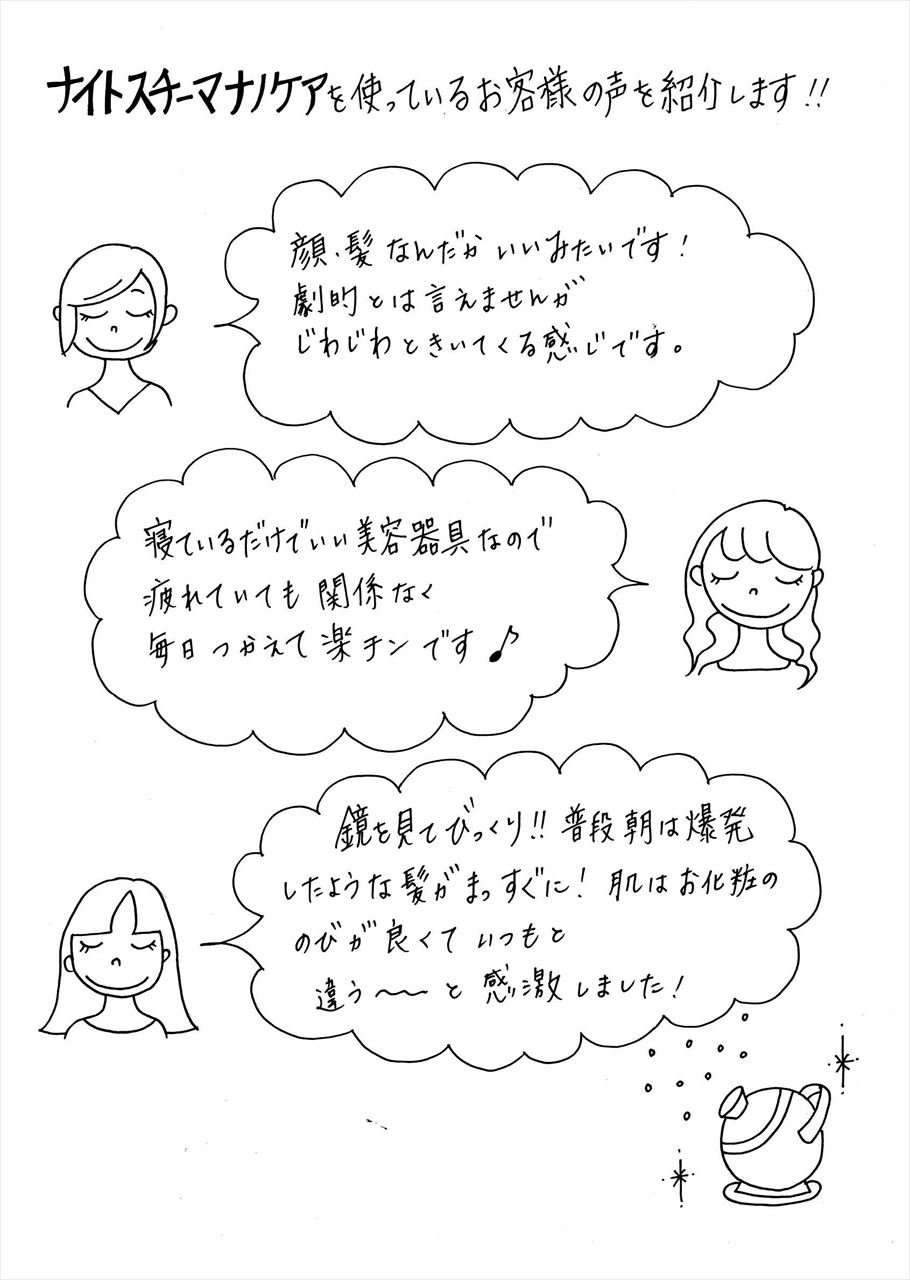 ナイトスチーマナノケアを使っているお客様の声を紹介します!!
顔・髪なんだかいいみたいです!
劇的とは言えませんが
じわじわときいてくる感じです。
寝ているだけでいい美容器具なので
疲れていても関係なく
毎日つかえて楽チンです♪
鏡を見てびっくり!!普段朝は爆発
したような髪がまっすぐに!肌はお化粧の
のびが良くていつもと
違う〜〜と感激しました!